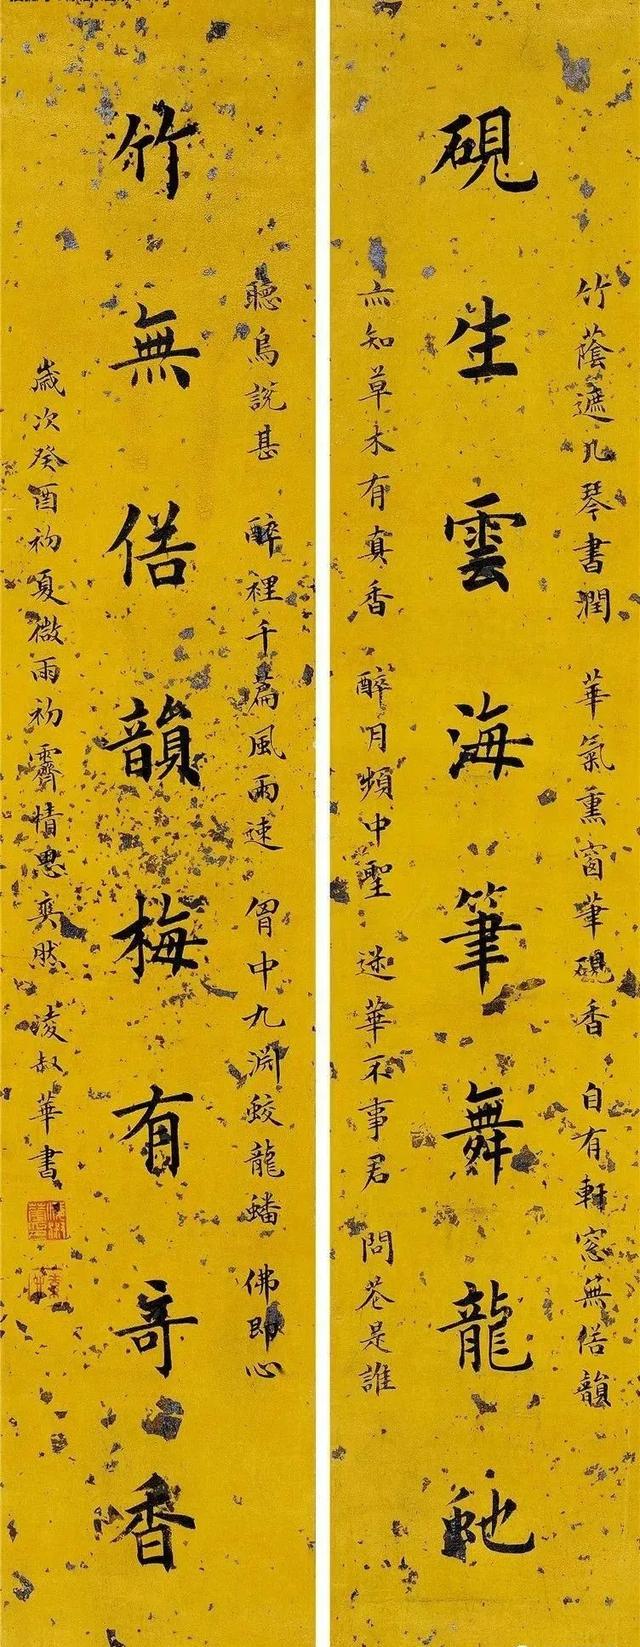 竹蔭遮几琴書潤 華氣熏窗筆硯香 自有軒窓無俗韻
硯生雲海筆舞龍虵
亦知草木有真香 醉月頻中聖 迷華不事君 問花是誰
聽鳥說甚 醉裡千篇風雨速 胷中九淵蛟龍蟠 佛即心
竹無俗韻梅有竒香
歲次癸酉初夏微雨初霽情思爽然 凌叔華書